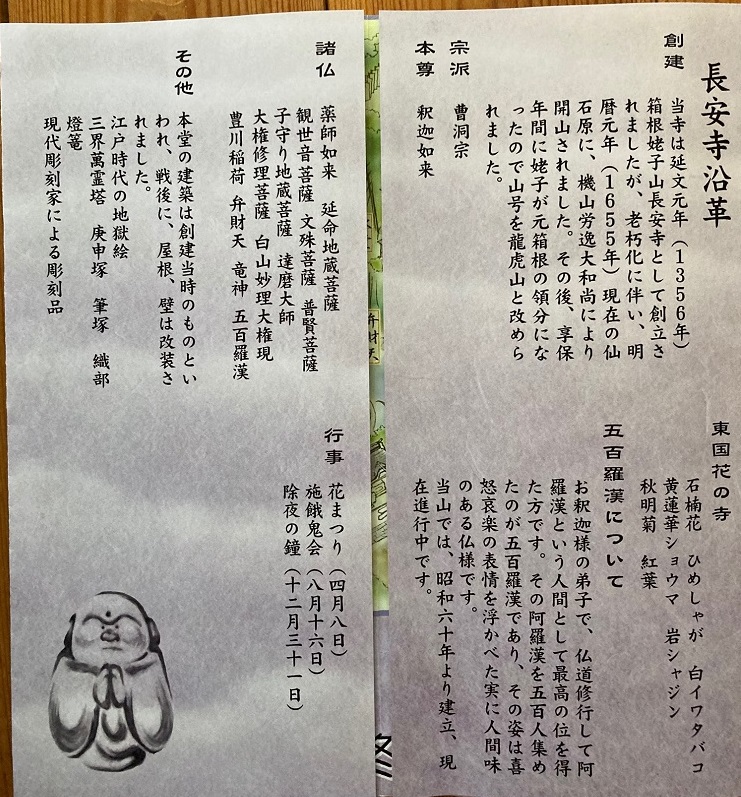 長安寺沿革
創建
当寺は延文元年（1356年）
箱根姥子山長安寺として創立さ
れましたが、老朽化に伴い、明
暦元年（1655年）現在の仙
石原に、機山労逸大和尚により
開山されました。その後、享保
年間に姥子が元箱根の領分にな
ったので山号を龍虎山と改めら
れました。
宗派　曹洞宗
本尊　釈迦如来
東国花の寺
石楠花　ひめしゃが　白イワタバコ
黄蓮華ショウマ　岩シャジン
秋明菊　紅葉
五百羅漢について
お釈迦様の弟子で、仏道修行して阿
羅漢という人間として最高の位を得
た方です。その阿羅漢を五百人集め
たのが五百羅漢であり、その姿は喜
怒哀楽の表情を浮かべた実に人間味
のある仏様です。
当山では、昭和六十年より建立、現
在進行中です。
諸仏
薬師如来　延命地蔵菩薩
観世音菩薩　文殊菩薩　普賢菩薩
子守り地蔵菩薩　達磨大師
大権修理菩薩　白山妙理大権現
豊川稲荷　弁財天　竜神　五百羅漢
その他
本堂の建築は創建当時のものとい
われ、戦後に、屋根、壁は改装さ
れました。
江戸時代の地獄絵
三界萬霊塔　庚申塚　筆塚　織部
燈篭
現代彫刻家による彫刻品
行事
花まつり（四月八日）
施餓鬼会（八月十六日）
除夜の鐘（十二月三十一日）
弁財天